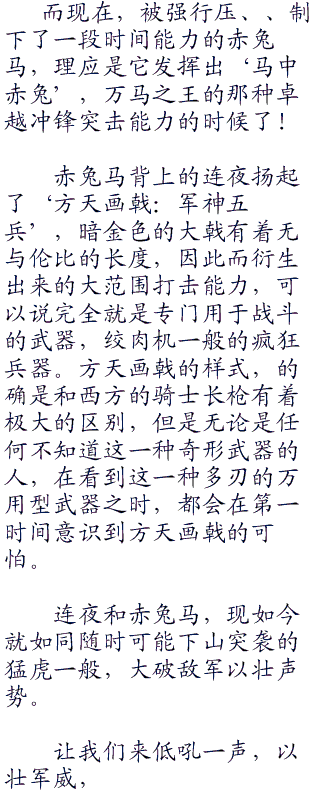 而现在，被强行压、、制
下了一段时间能力的赤兔
马，理应是它发挥出‘马中
赤兔’，万马之王的那种卓
越冲锋突击能力的时候了！
赤兔马背上的连夜扬起
了‘方天画戟：军神五
兵’，暗金色的大戟有着无
与伦比的长度，因此而衍生
出来的大范围打击能力，可
以说完全就是专门用于战斗
的武器，绞肉机一般的疯狂
兵器。方天画戟的样式，的
确是和西方的骑士长枪有着
极大的区别，但是无论是任
何不知道这一种奇形武器的
人，在看到这一种多刃的万
用型武器之时，都会在第一
时间意识到方天画戟的可
怕。
连夜和赤兔马，现如今
就如同随时可能下山突袭的
猛虎一般，大破敌军以壮声
势。
让我们来低吼一声，以
壮军威，